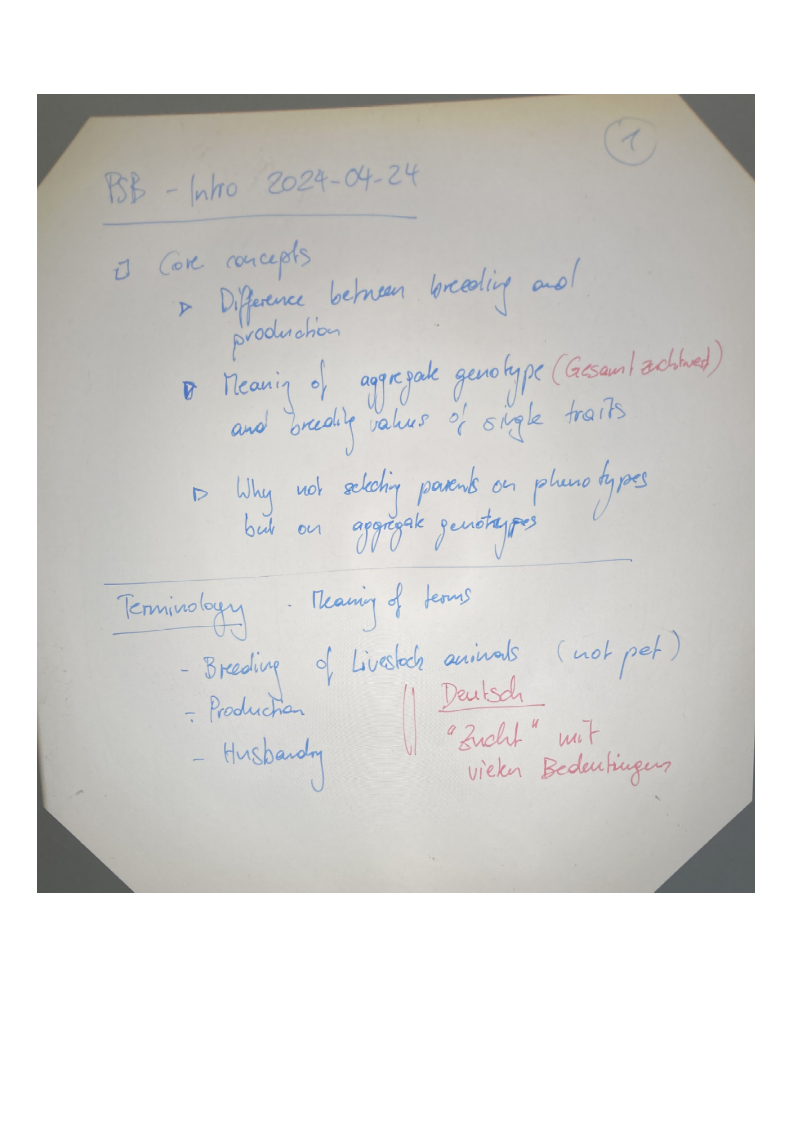 1
PSB - Intro 2024-04-24
Core concepts
Difference between breeding and
production
Meaning of aggregate genotype (Gesamtzuchtwert)
and breeding values of single traits
Why not selecting parents on phenotypes
but on aggregate genotypes
Terminology . Meaning of terms
- Breeding of Livestock animals (not pet)
- Production
- Husbandry
Deutsch
"Zucht" mit
vielen Bedeutungen